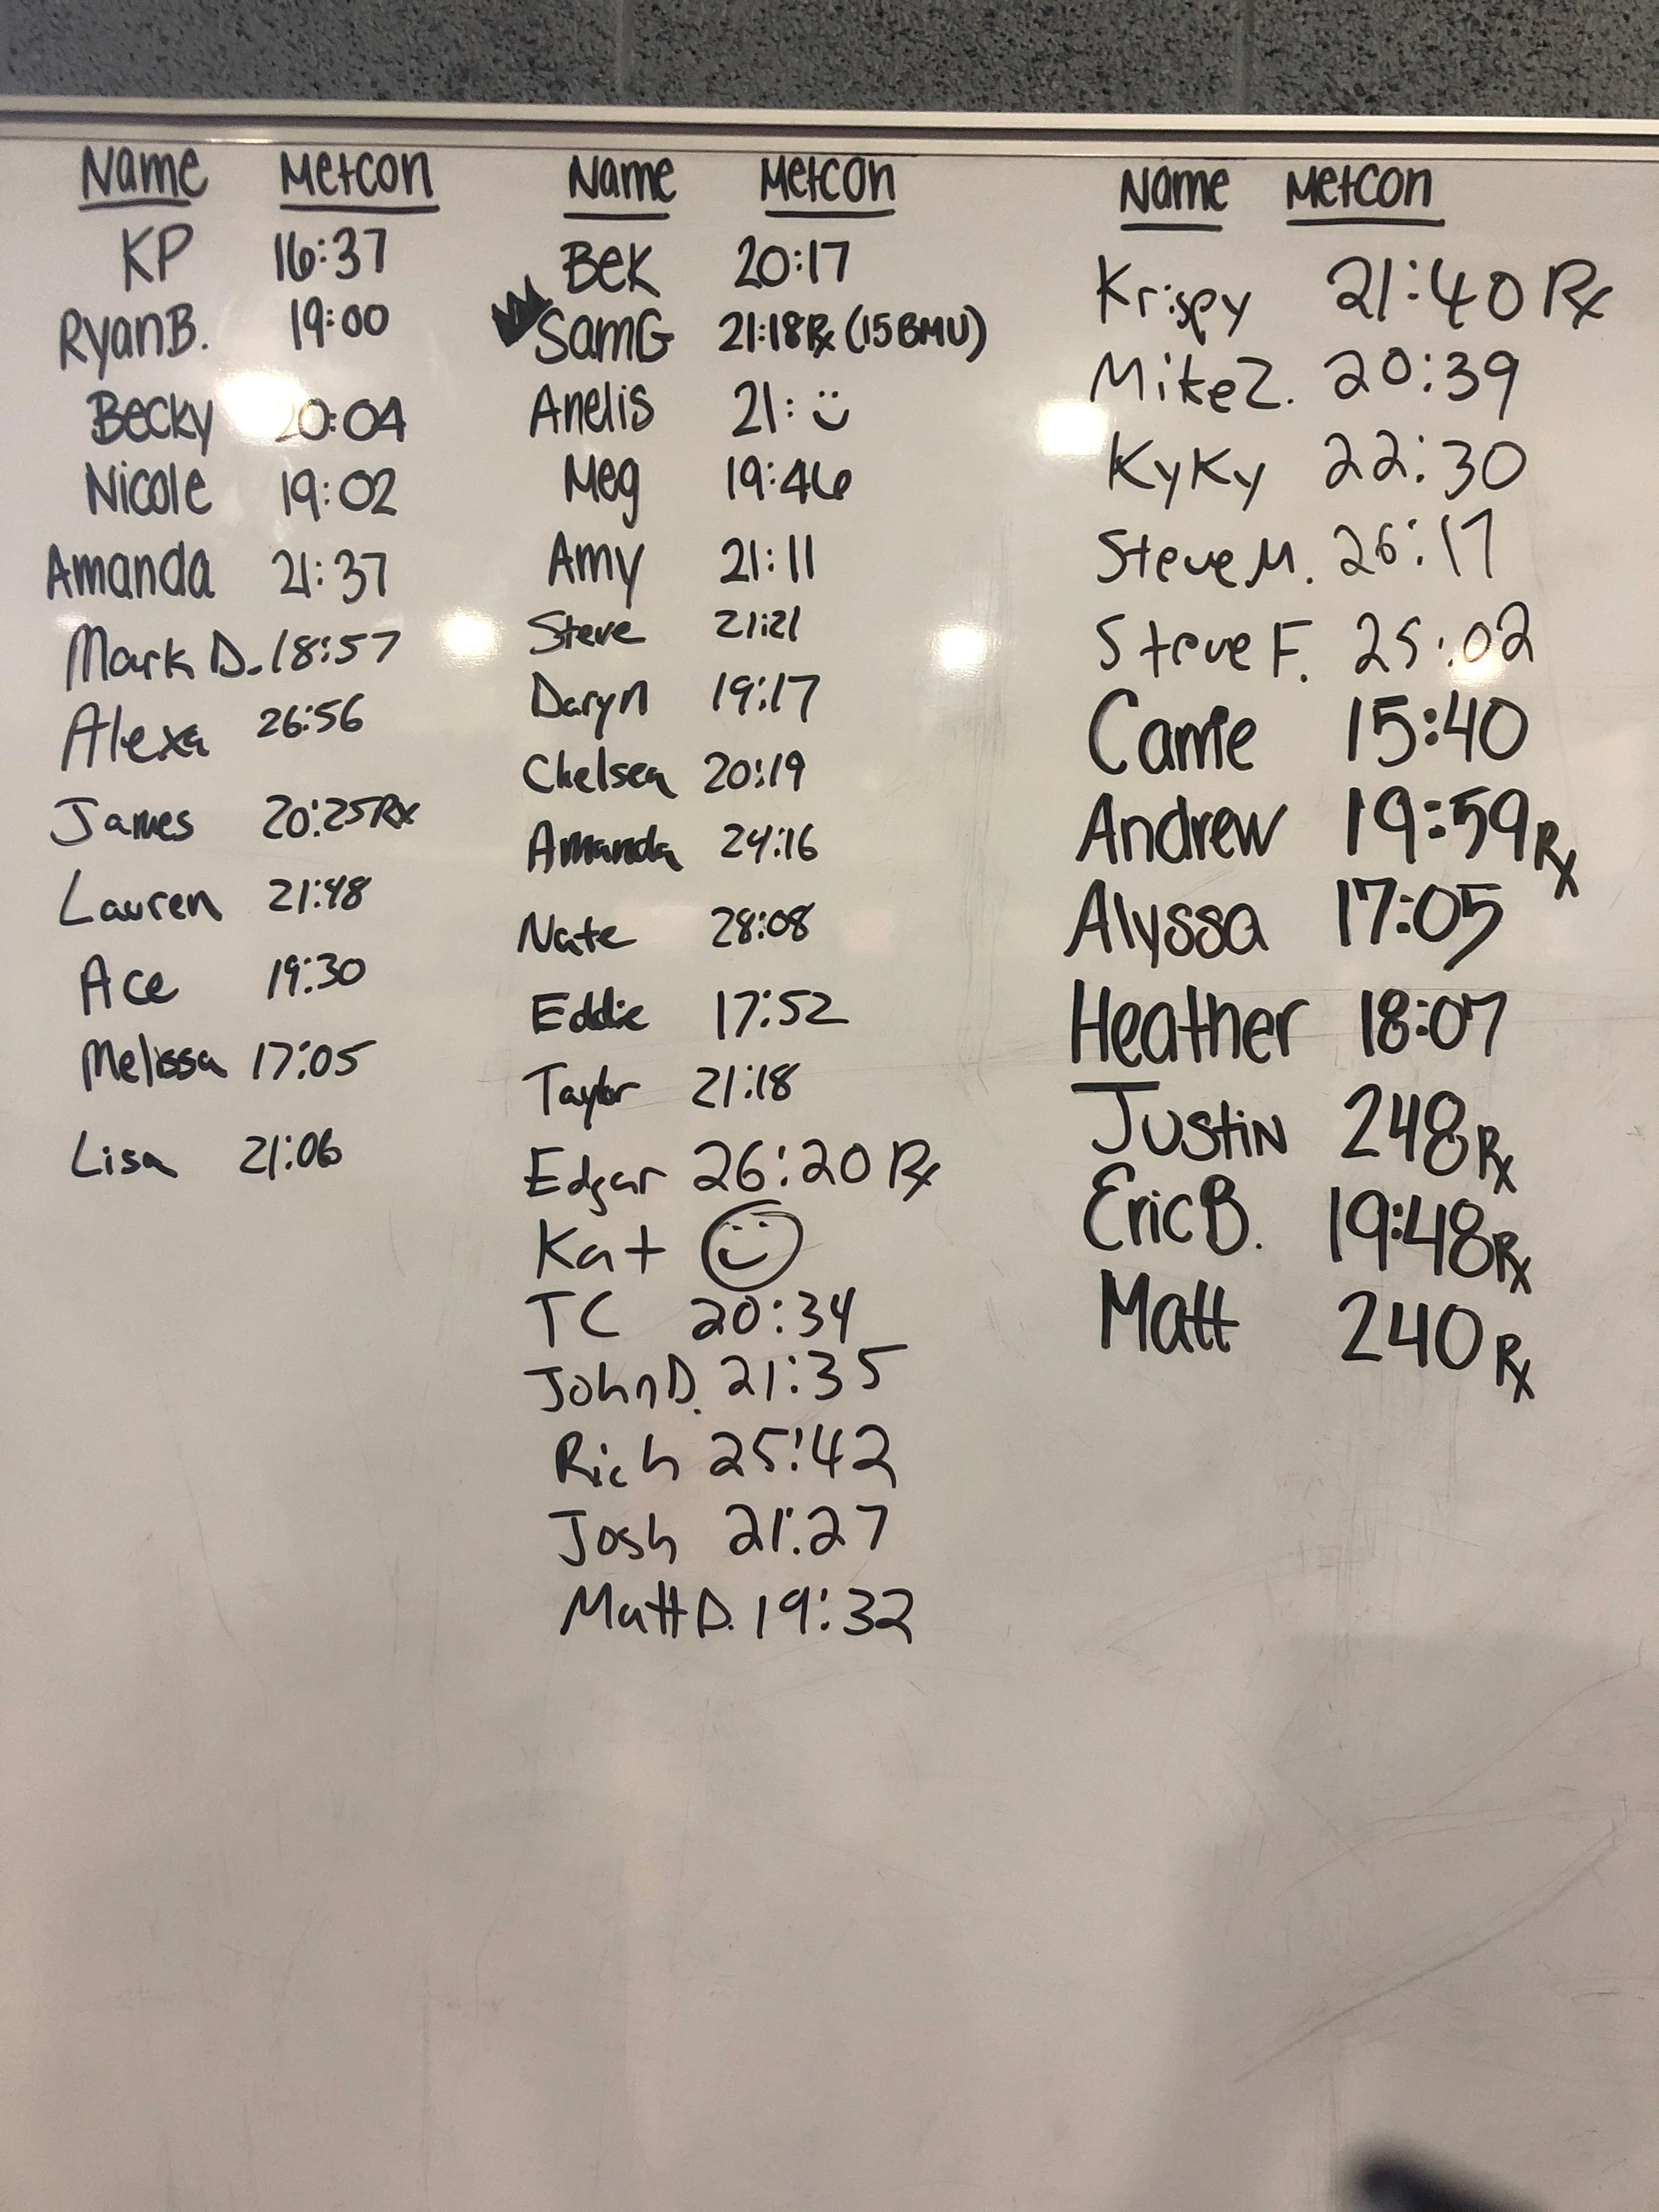 Name Metcon
KP 16:37
Ryan B. 19:00
Becky 20:04
Nicole 19:02
Amanda 21:37
Mark D. 18:57
Alexa 26:56
James 20:25 Rx
Lauren 21:48
Ace 19:30
Melissa 17:05
Lisa 21:06
Name Metcon
Bek 20:17
Sam G 21:18 Rx (15 BMU)
Anelis 21:
Meg 19:46
Amy 21:11
Steve 21:21
Daryn 19:17
Chelsea 20:19
Amanda 24:16
Nate 28:08
Eddie 17:52
Taylor 21:18
Edgar 26:20 Rx
Kat
TC 20:34
John D. 21:35
Rich 25:42
Josh 21:27
Matt D. 19:32
Name Metcon
Krispy 21:40 Rx
Mike Z. 20:39
KyKy 22:30
Steve M. 26:17
Steve F. 25:02
Carrie 15:40
Andrew 19:59 Rx
Alyssa 17:05
Heather 18:07
Justin 248 Rx
Eric B. 19:48 Rx
Matt 240 Rx